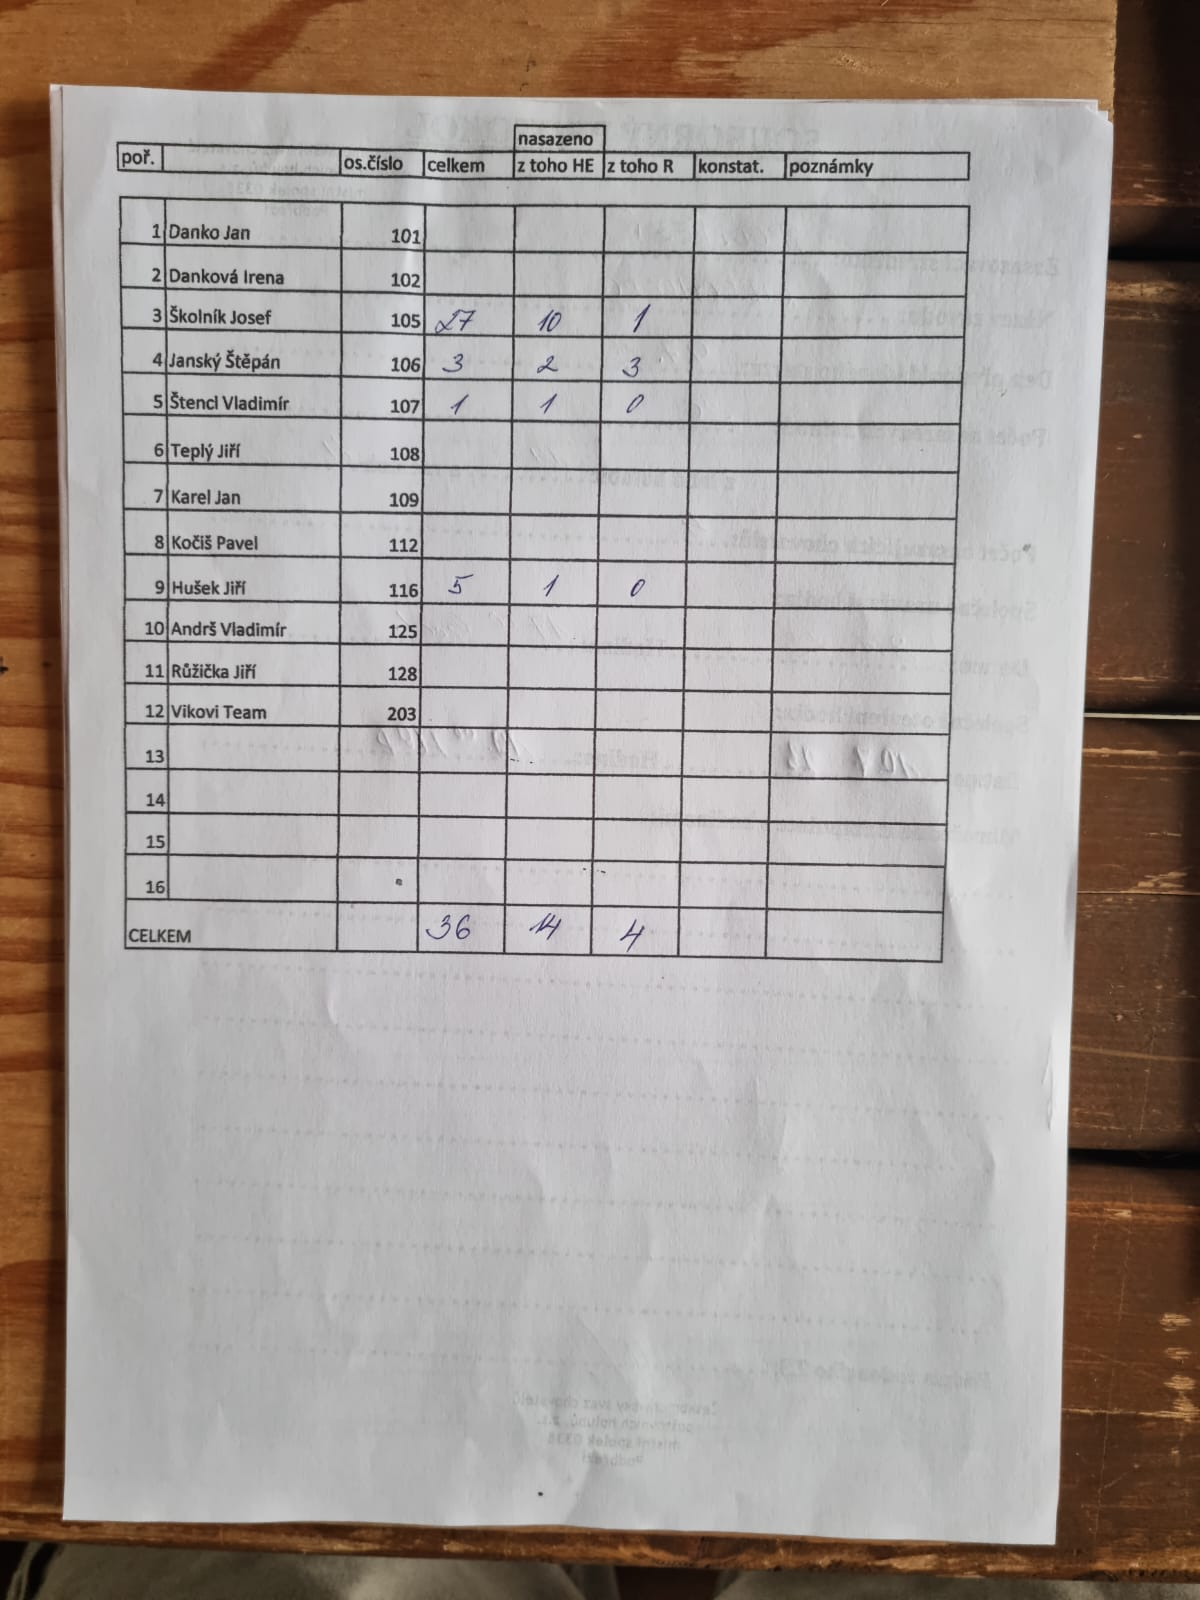 nasazeno
poř. os.číslo celkem z toho HE z toho R konstat. poznámky
1 Danko Jan 101
2 Danková Irena 102
3 Školník Josef 105 27 10 1
4 Janský Štěpán 106 3 2 3
5 Štencl Vladimír 107 1 1 0
6 Teplý Jiří 108
7 Karel Jan 109
8 Kočiš Pavel 112
9 Hušek Jiří 116 5 1 0
10 Andrš Vladimír 125
11 Růžička Jiří 128
12 Vikovi Team 203
13
14
15
16
CELKEM 36 14 4